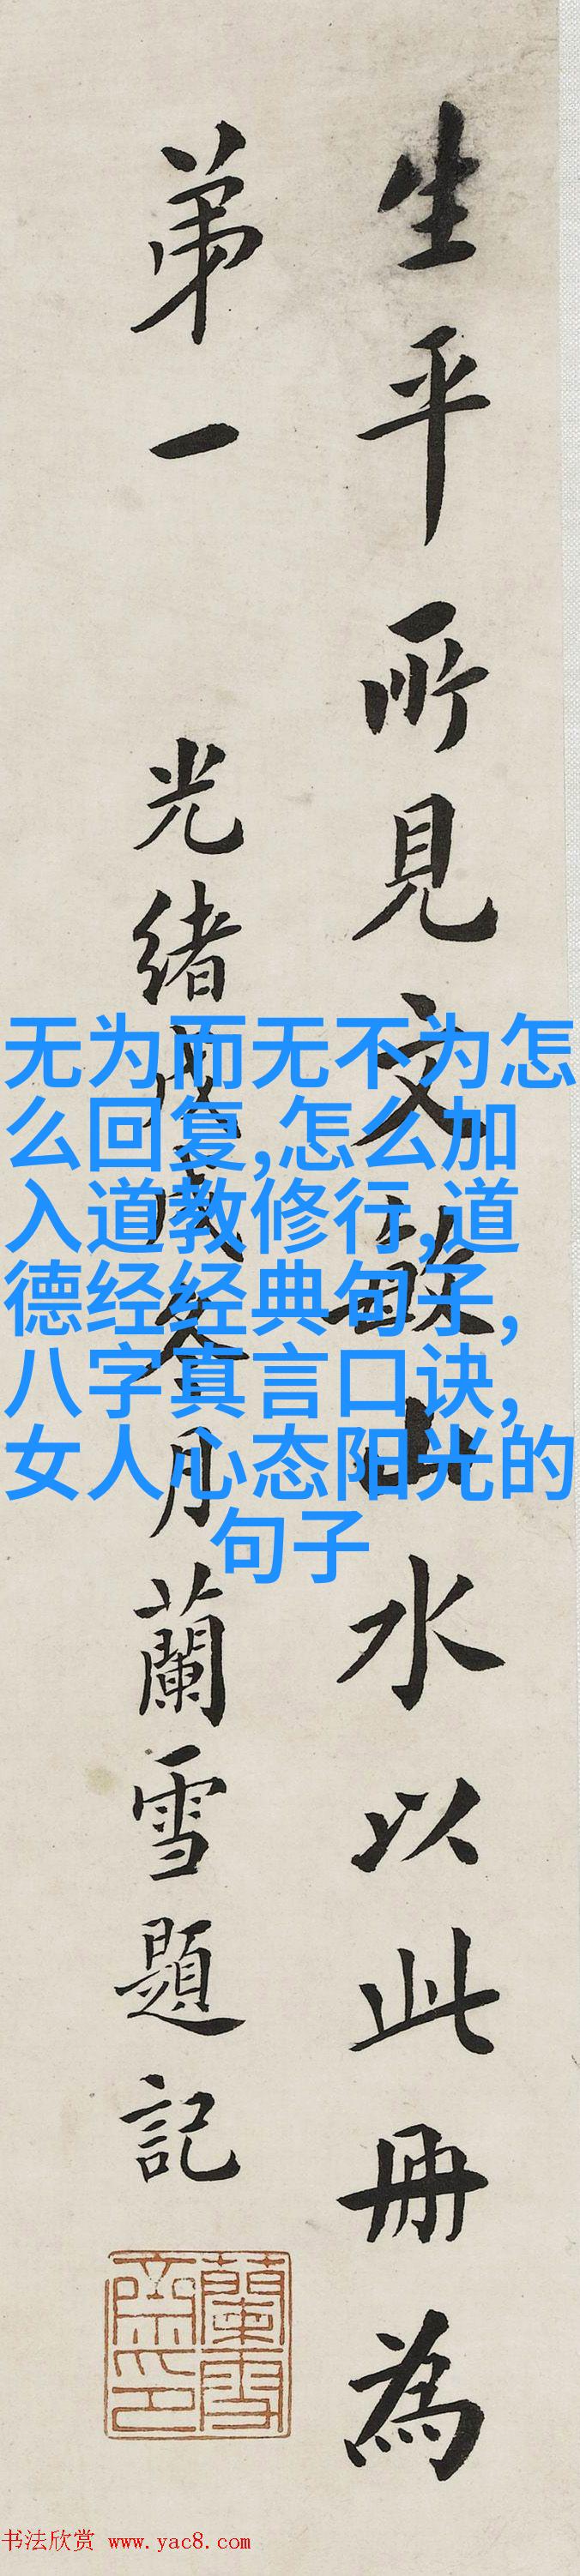 生平所見文敏山水以此册為
弟一
光緒戊戌冬月蘭雪題記
蘭雪齋印
无为而无不为怎
么回复,怎么加
入道教修行,道
德经经典句子,
八字真言口诀,
女人心态阳光的
句子
书法欣赏 www.yac8.com